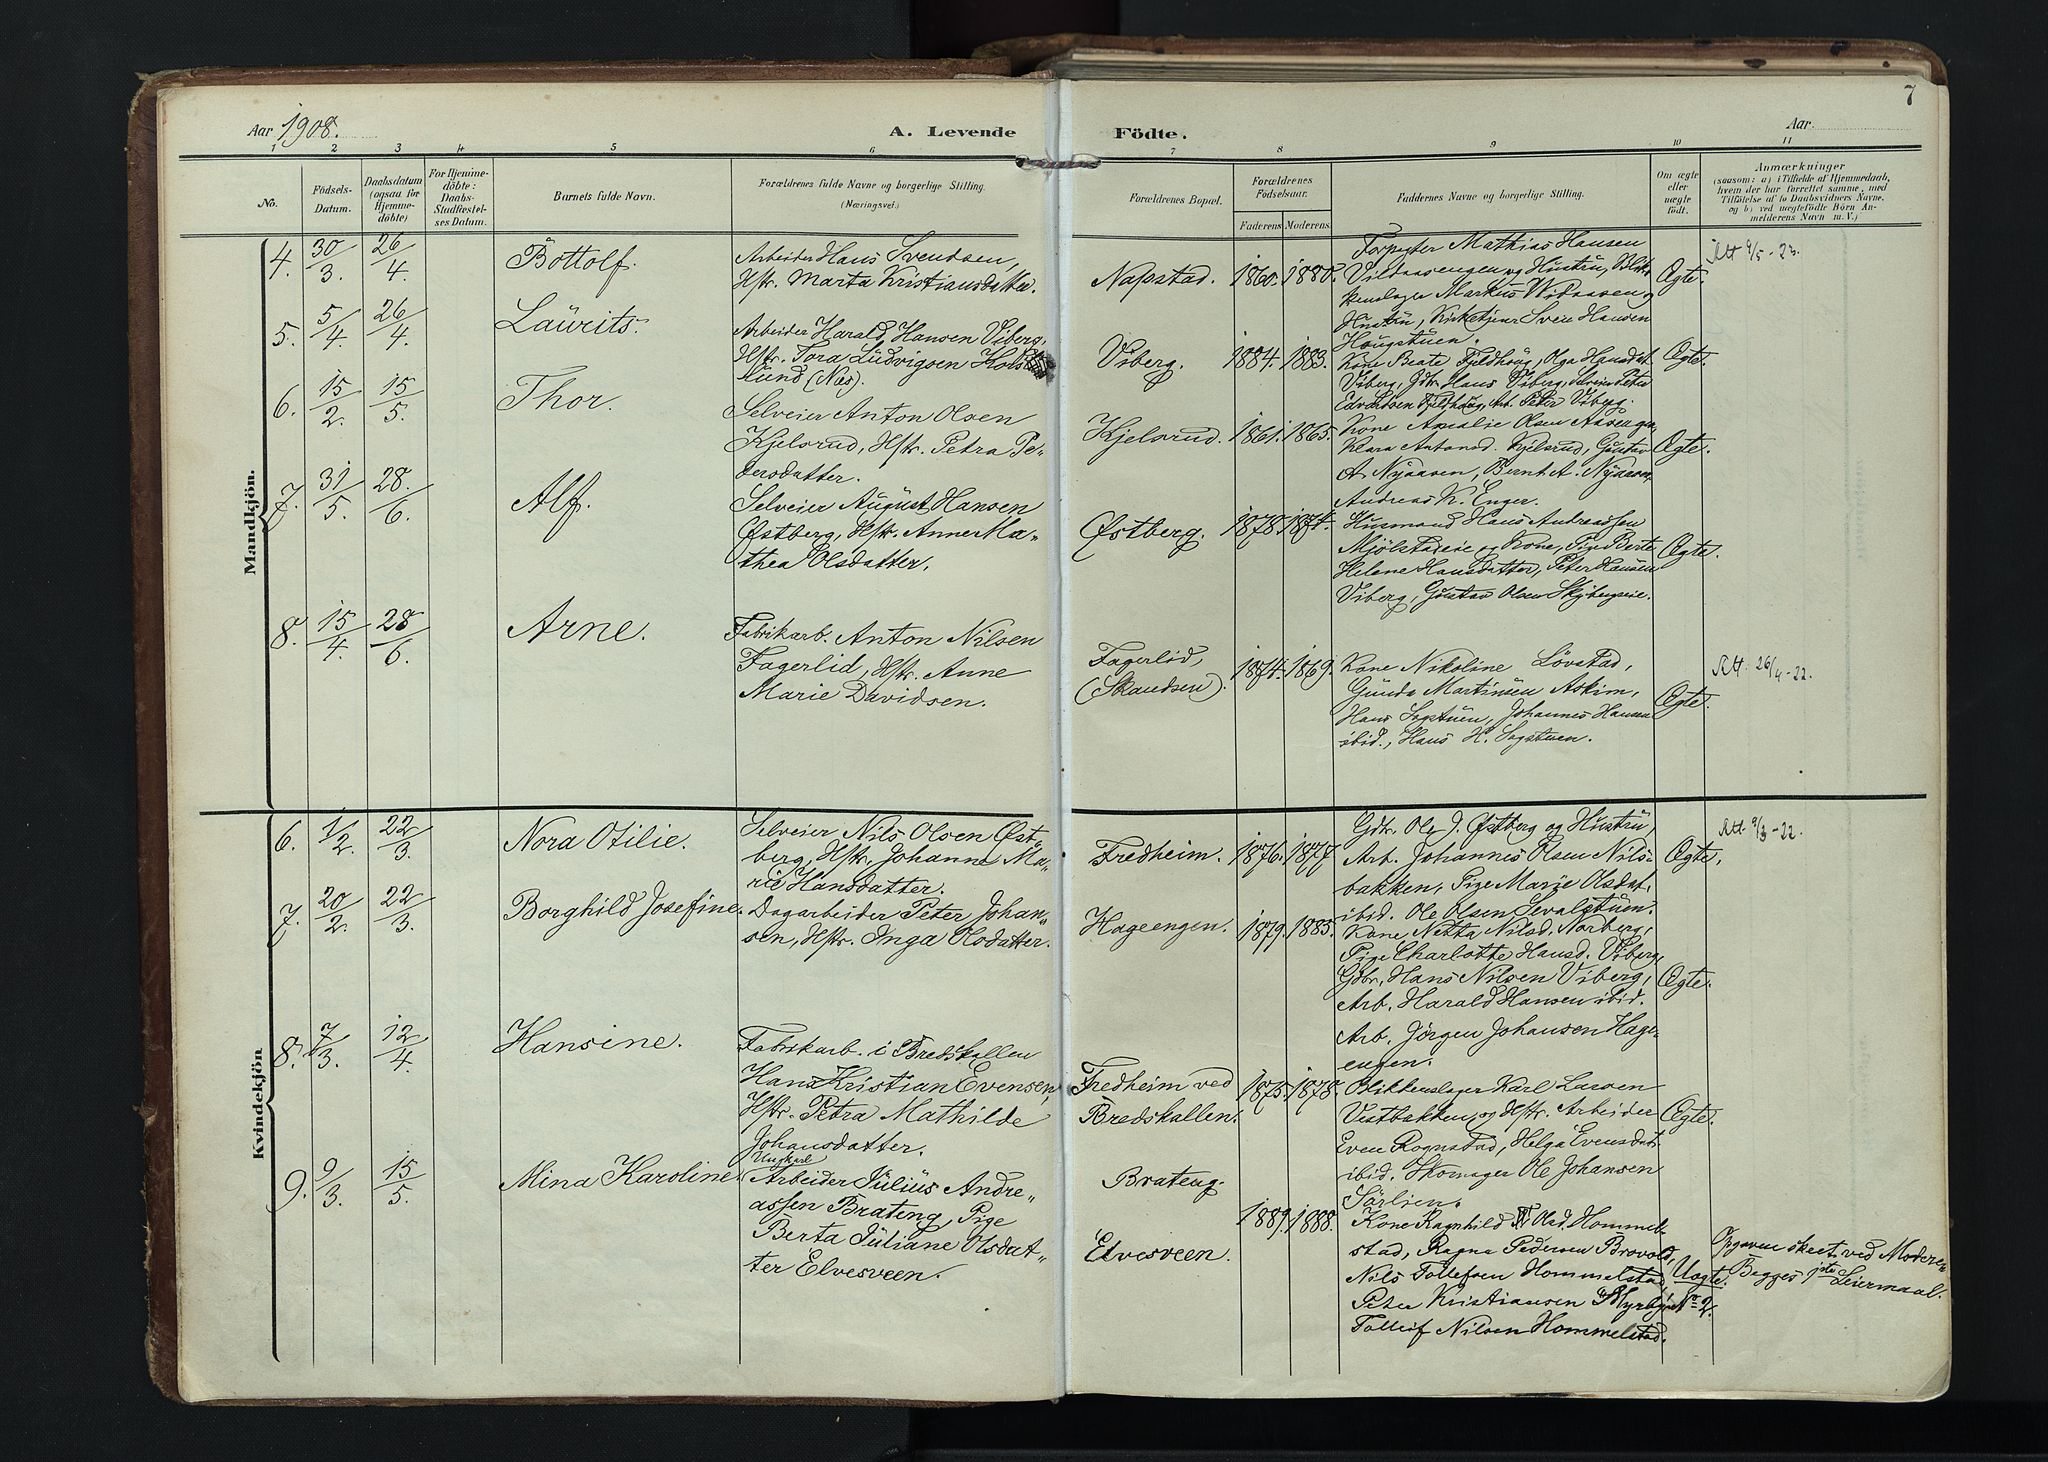 7
Aar 1908.
A. Levende
Födte.
Aar.
1 2 3 4 5 6 7 8 9 10 11
No.
Födsels-
Datum.
Daabsdatum
(ogsaa for
Hjemme-
döbte)
For Hjemme-
döbte:
Daabs-
Stadfæstel-
ses Datum.
Barnets fulde Navn.
Forældrenes fulde Navne og borgerlige Stilling.
(Næringsvei.)
Forældrenes Bopæl.
Forældrenes
Födselsaar.
Faderens Moderens.
Faddernes Navne og borgerlige Stilling.
Om ægte
eller
uægte
födt.
Anmærkninger
(saasom: a) i Tilfælde af Hjemmedaab,
hvem der har forrettet samme, med
Tilföielse af to Daabsvidners Navne,
og b) ved uægtefödte Börn An-
melderens Navn m. V.)
Mandkjön.
4. 30/3. 26/4
Bottolf.
Arbeider Hans Svendsen,
Hstr. Marta Kristiansdatter.
Napstad. 1860. 1880.
Forpagter Mathias Hansen
Vildaasengen og Hustru, Blik-
kenslager Markus Widaasen og
Hustru, Kirketjener Sven Hansen
Haugstuen.
Ægte.
Att 9/5-23.
5. 5/4. 26/4.
Laurits.
Arbeider Harald Hansen Viberg,
Hstr. Tora Ludvigsen Hols-
lund (Næs).
Viberg. 1884. 1883.
Kone Beate Fjeldhaug, Olga Hansdat.
Viberg, Gdbr. Hans Viberg, Svein Peter
Edvardsen Fjeldhaug, Arb. Peter Viberg.
Ægte.
6. 15/2. 15/5.
Thor.
Selveier Anton Olsen
Kjelsrud, Hstr. Petra Pe-
dersdatter.
Kjelsrud. 1861. 1865.
Kone Amalie Olsen Aasengen,
Klara Antonsd. Kjelsrud, Gustav
A. Nyaasen, Bernt A. Nyaasen,
Andreas K. Enger.
Ægte.
7. 31/5. 28./6.
Alf.
Selveier August Hansen
Østberg, Hstr. Anne Ma-
thea Olsdatter.
Østberg. 1878. 1874.
Husmand Hans Andreassen
Mjölstadeie og Kone, Pige Berte
Helene Hansdatter, Peter Hansen
Viberg, Gustav Olsen Skybergseie.
Ægte.
8. 15/4. 28/6.
Arne.
Fabrikarb. Anton Nilsen
Fagerlid, Hstr. Anne
Marie Davidsen.
Fagerlid,
(Skandsen). 1874. 1869.
Kone Nikoline Lövstad,
Gunda Martinsen Askim,
Hans Sogstuen, Johannes Hansen
ibid., Hans H. Sogstuen.
Ægte.
Att. 26/4-22.
Kvindekjön
6. 1/2. 22/3.
Nora Otilie.
Selveier Nils Olsen Øst-
berg, Hstr. Johanne Ma-
rie Hansdatter.
Fredheim. 1876. 1877
Gdbr. Ole J. Østberg og Hustru,
Arb. Johannes Olsen Nils-
bakken, Pige Marie Olsdat.
ibid. Ole Olsen Sevalstuen.
Ægte.
Att. 9/3-22.
7. 20/2. 22/3.
Borghild Josefine.
Dagarbeider Peter Johan-
sen, Hstr. Inga Olsdatter.
Hageengen. 1879. 1885.
Kone Netta Nilsd. Norberg,
Pige Charlotte Hansd. Viberg,
Gdbr. Hans Nilsen Viberg,
Arb. Harald Hansen ibid.
Arb. Jörgen Johansen Hage-
engen.
Ægte.
8. 7/3. 12/4.
Hansine.
Fabrikarb. i Bredskallen
Hans Kristian Evensen,
Hstr. Petra Mathilde
Johansdatter.
Fredheim ved
Bredskallen. 1875. 1878.
Blikkenslager Karl Larsen
Vestbakken og Hstr. Arbeider
Even Rognstad, Helga Evensdat.
ibid. Skomager Ole Johansen
Sörlien.
Ægte.
9. 9/3. 15/5.
Mina Karoline.
Ungkarl
Arbeider Julius Andre-
assen Brateng, Pige
Berta Juliane Olsdat-
ter Elvesveen.
Brateng
Elvesveen. 1889. 1888.
Kone Ragnhild Olsd. Hommel-
stad, Ragna Pedersen Brovold,
Nils Tollefsen Hommelstad,
Peter Kristiansen Myrby
Tolleif Nilsen Hommelstad.
Uægte.
Nr 2.
Opgaven skeet ved Moderen
Begges 1ste Leiermaal.